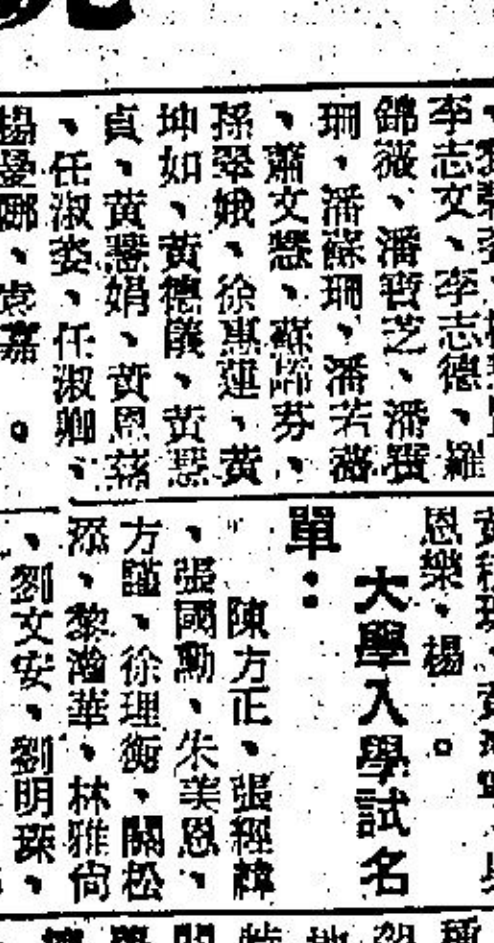 李志文、李志德、羅
錦薇、潘寶芝、潘寶
珊、潘蘇珊、潘若薇
、蕭文慧、蘇芬、
孫翠娥、徐惠蓮、黃
坤如、黃德儀、黃慧
貞、黃慧娟、黃恩慈
、任淑姿、任淑卿、
楊曼娜、袁嘉。
恩樂、楊。
大學入學試名
單：
陳方正、張經緯
、張國勳、朱美恩、
方謹、徐理衡、關松
添、黎瀚華、林雅尚
、劉文安、劉明琛、